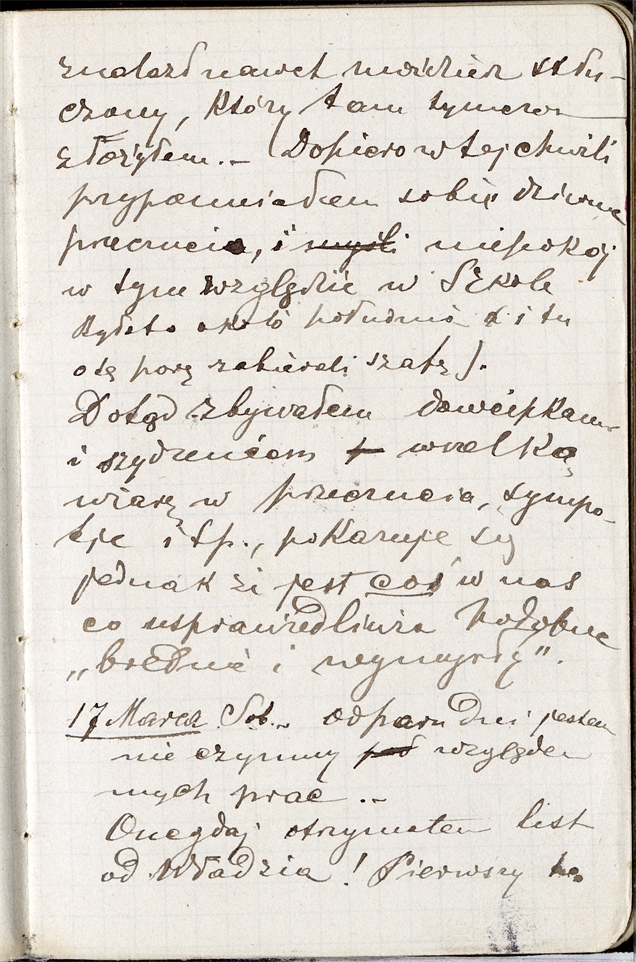 znalazł nawet moździerz stłu-
czony, który tam tymczas
złożyłem.- Dopiero w tej chwili
przypomniałem sobie dziwne
przeczucia, i myśli niepokój
w tym względzie w Szkole
Było to około południa (i tu
otę porę zabierali szafę).
Dotąd zbywałem dowcipkami
i szydzeniem wszelką
wiarę w przeczucia, sympa-
tje i t.p., pokazuje się
jednak że jest coś w nas
co usprawiedliwia podobne
„brednie i wymysły".
17 Marca Sob.- od paru dni jestem
nieczynny pod względem
mych prac.-
Onegdaj otrzymałem list
od Władzia! Pierwszy